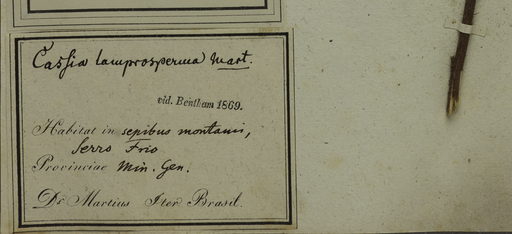 Cassia lamprosperma Mart.
vid. Bentham 1869.
Habitat in sepibus montanis,
Serro Frio
Provinciae Min. Gen.
Dr. Martius Iter Brasil.